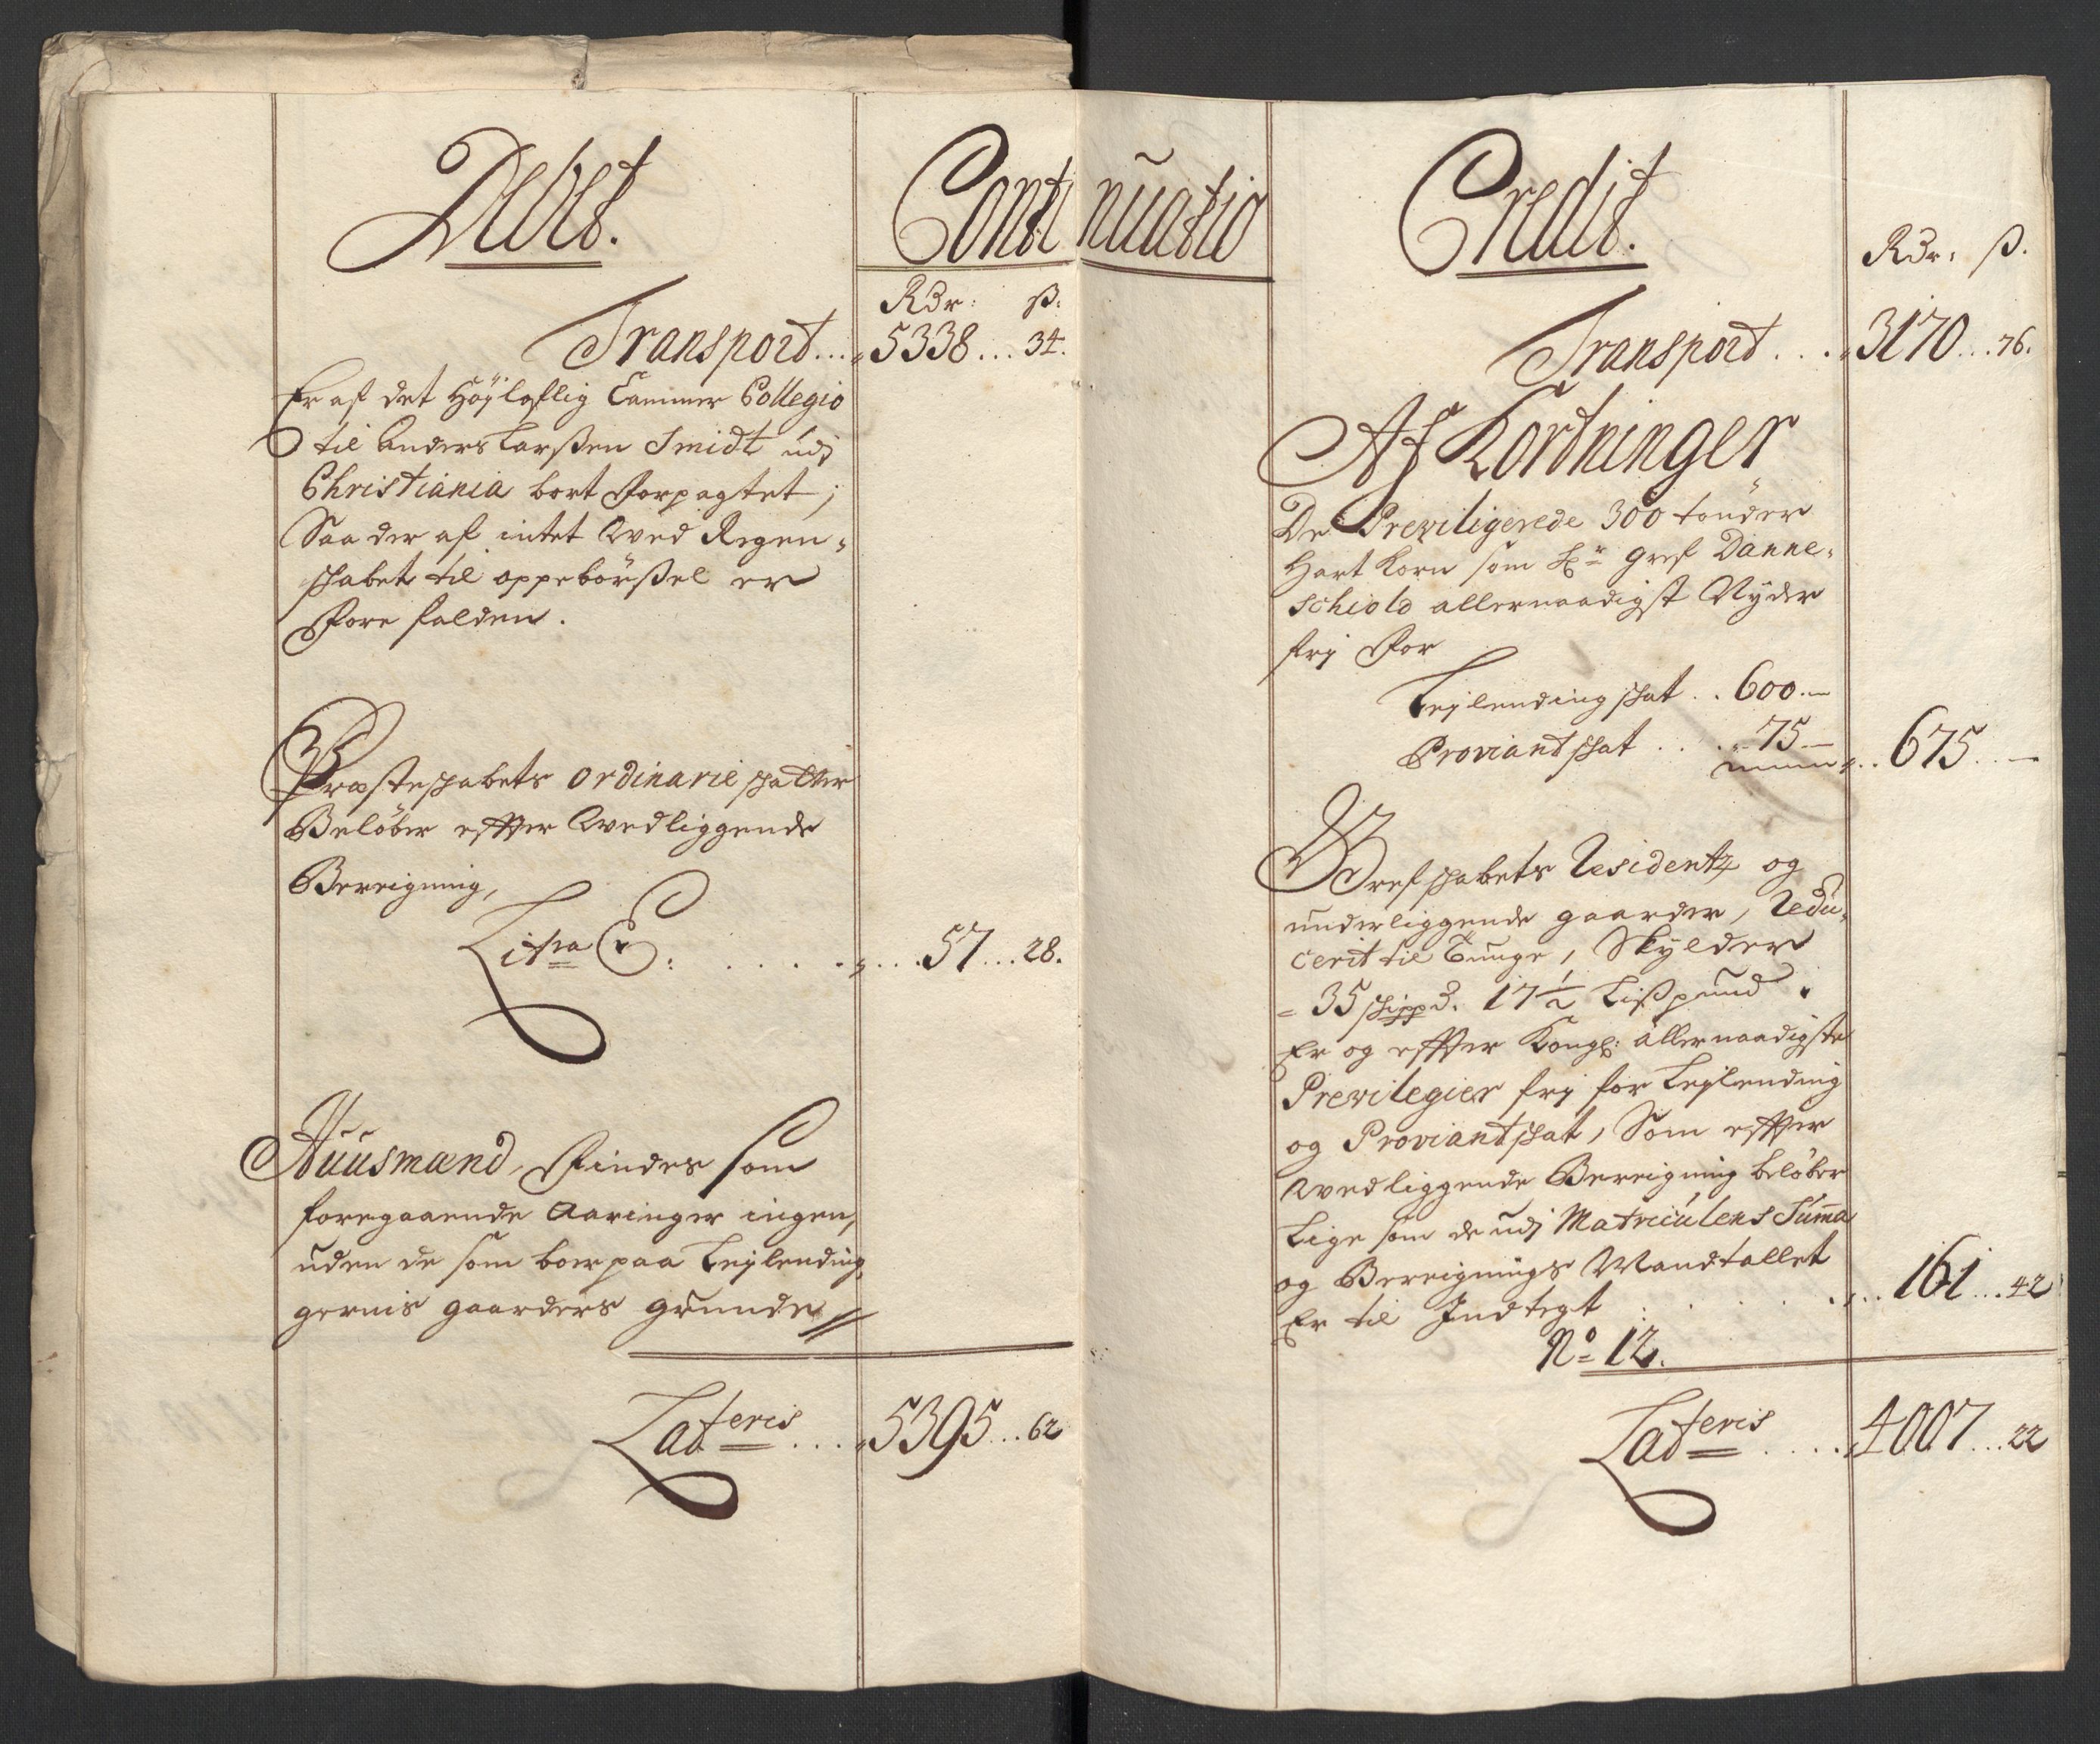 Debet.
Continuatio
Rdr: ß:
Transport....5338...34.
Er af det Höyloflig Cammer Collegio
til Anders Larßen Smidt udj
Christiania bort Forpagtet;
Saa der af intet Wed Regen-
skabet til oppebörßel er
Fore falden.
Præsteskabets ordinarie skatter
Belöber effter Wedliggende
Bereigning,
Litra E: . . . . . . 57...28.
Huusmænd, Findes som
foregaaende Aaringer ingen,
uden de som boer paa Leylending-
gernis gaarders grunde
Lateris....5395...62
Credit.
Rdr: ß.
Transport....3170...76.
Af Kortninger
De Previligerede 300 tönder
Hart Korn som Hr Gref Danne-
schiold allernaadigst Nyder
frj For
Leylending skat . . 600.—
Proviant skat . . . 75.—
675...—
Grefskabets Residentz og
underliggende gaarder, Redu-
cerit til Tunge, Skylder
- 35 skippd. 17½ Lißpund
Er og effter Kongl: allernaadigste
Previlegier frj for Leylending
og Proviantskat, Som effter
Wedliggende Bereigning belöber
Lige som de udj Matriculens Summa
og Bereignings Mandtallet
Er til Indtegt . . . . . 161...42
No 12.
Lateris....4007...22